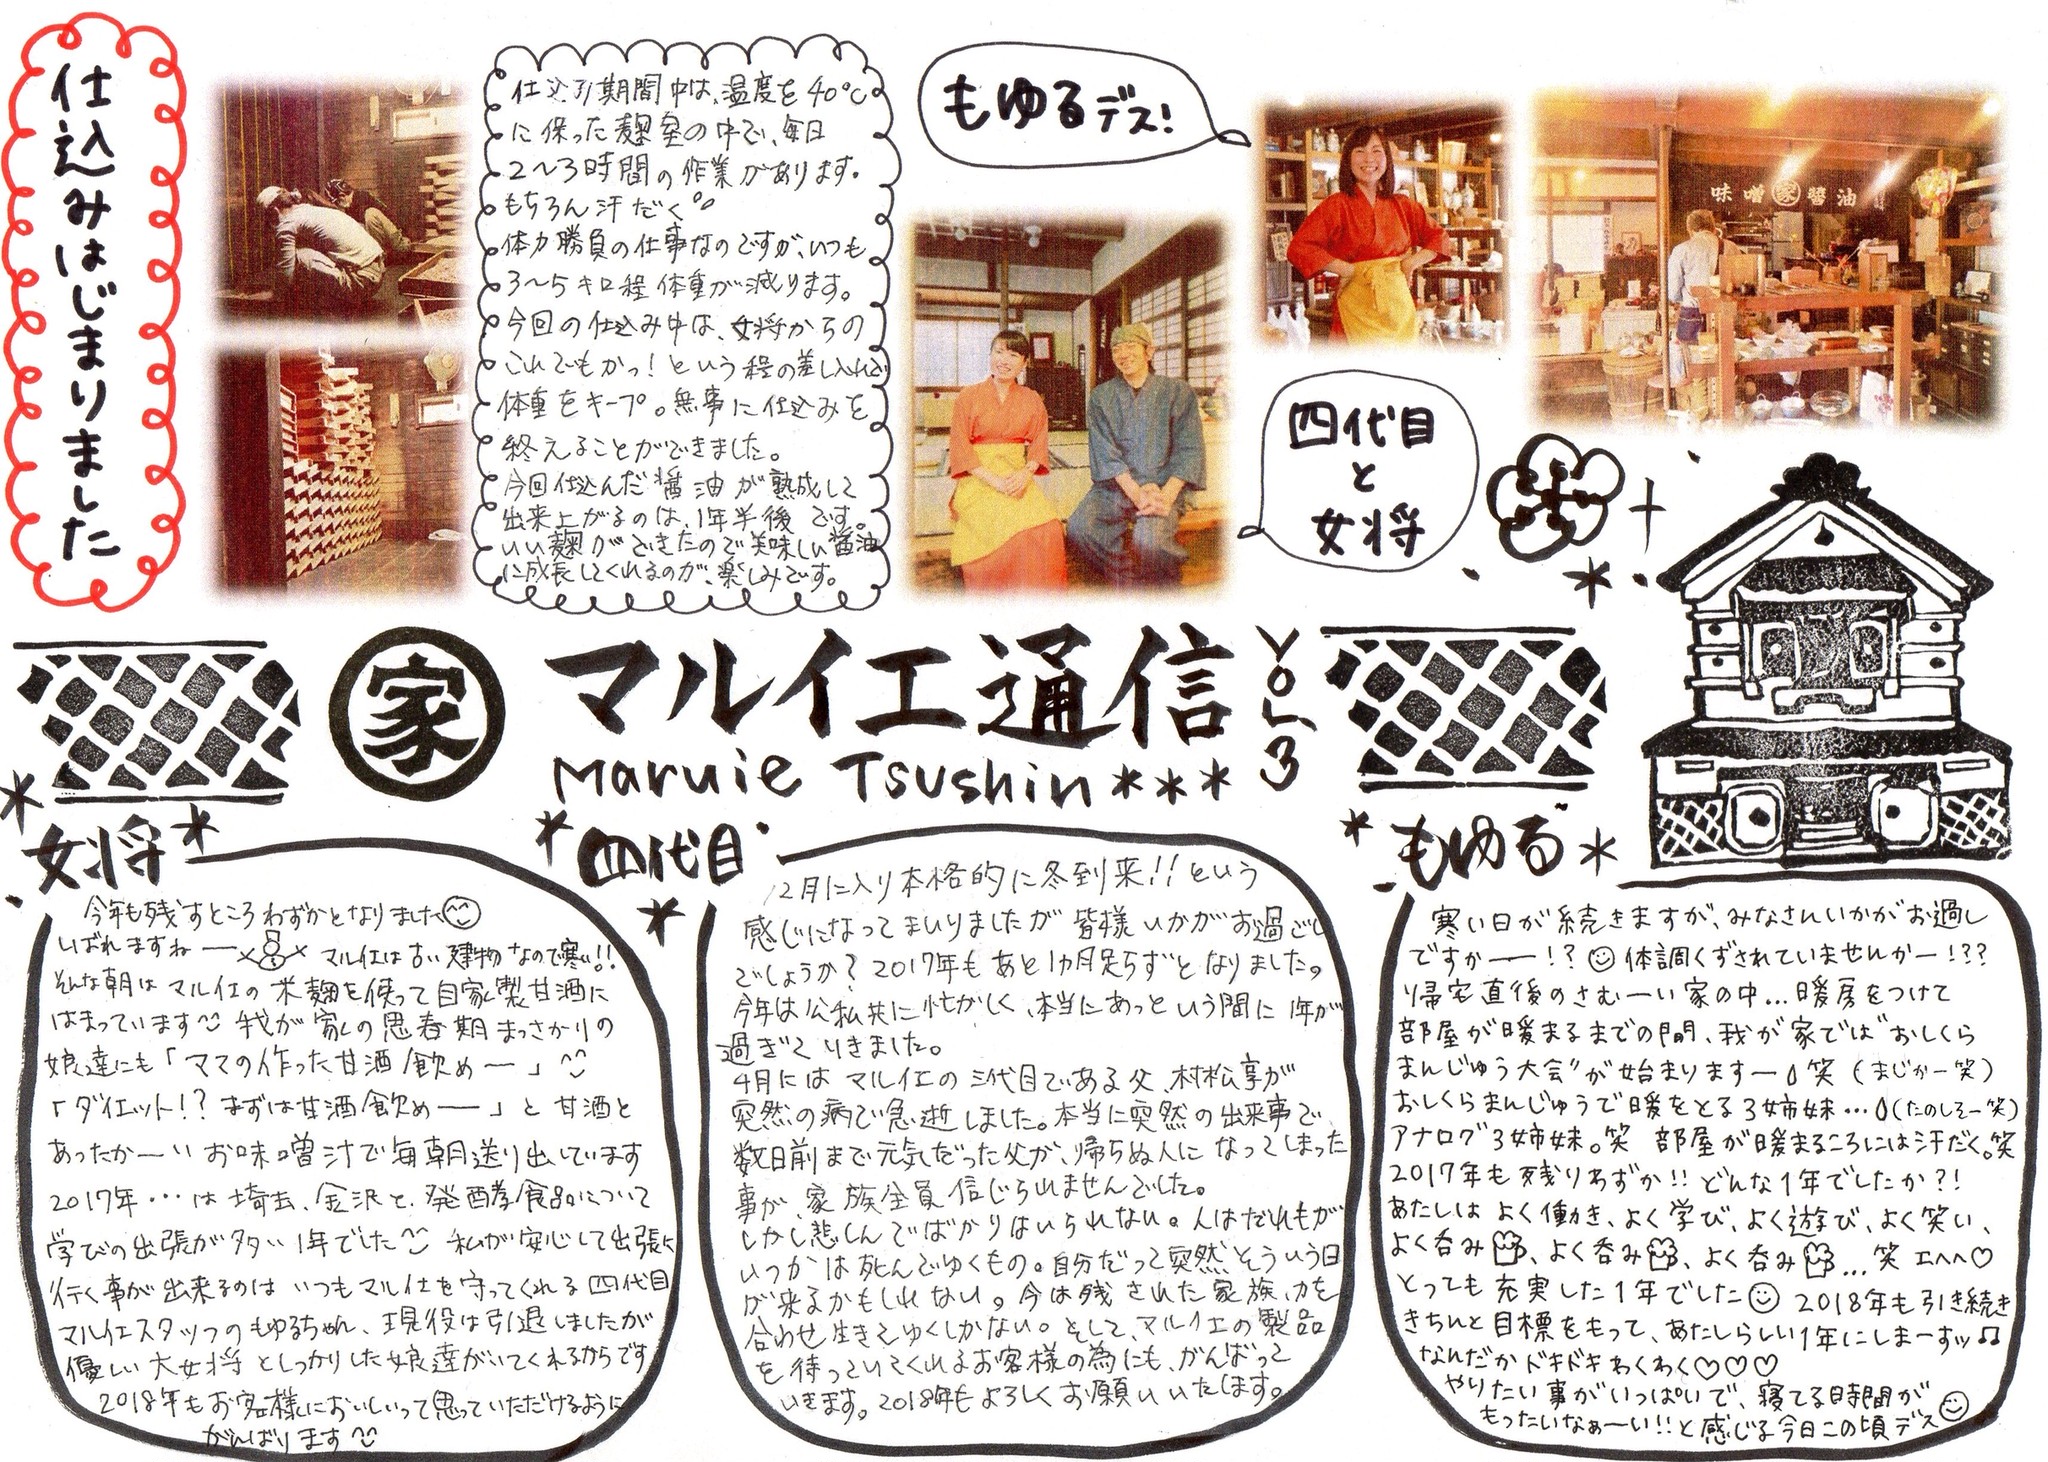 仕込みはじまりました
仕込み期間中は、温度を40℃
に保った麹室の中で、毎日
2〜3時間の作業があります。
もちろん汗だく
体力勝負の仕事なのですが、いつも
3〜5キロ程体重が減ります。
今回の仕込み中は、女将からの
これでもかっ!という程の差し入れで
体重をキープ。無事に仕込みを
終えることができました。
今回仕込んだ醤油が熟成して
出来上がるのは、1年半後です。
いい麹ができたので美味しい醤油
に成長してくれるのが、楽しみです。
もゆるデス!
四代目
と
女将
味噌 家 醤油
家
マルイエ通信
VOL3
Maruie Tsushin***
女将
今年も残すところわずかとなりました
しばれますねー マルイエは古い建物なので寒い!!
そんな朝はマルイエの米麹を使って自家製甘酒に
はまっています 我が家の思春期まっさかりの
娘達にも「ママの作った甘酒飲めー」
「ダイエット!?まずは甘酒飲めー」と甘酒と
あったかーいお味噌汁で毎朝送り出しています
2017年・・・は埼玉、金沢と、発酵食品について
学びの出張が多い1年でした 私が安心して出張に
行く事が出来るのはいつもマルイエを守ってくれる四代目
マルイエスタッフのもゆるちゃん、現役は引退しましたが
優しい大女将としっかりした娘達がいてくれるからです
2018年もお客様においしいって思っていただけるように
がんばります
四代目
12月に入り本格的に冬到来!!という
感じになってまいりましたが皆様いかがお過ごし
でしょうか?2017年もあと1ヵ月足らずとなりました。
今年は公私共に忙がしく、本当にあっという間に1年が
過ぎていきました。
4月にはマルイエの三代目である父、村松享が
突然の病で急逝しました。本当に突然の出来事で、
数日前まで元気だった父が、帰らぬ人になってしまった
事が、家族全員信じられませんでした。
しかし悲しんでばかりはいられない。人はだれもが
いつかは死んでゆくもの。自分だって突然そういう日
が来るかもしれない。今は残された家族、力を
合わせ生きてゆくしかない。そして、マルイエの製品
を待っていてくれるお客様の為にも、がんばって
いきます。2018年もよろしくお願いいたします。
もゆる
寒い日が続きますが、みなさんいかがお過し
ですかー!? 体調くずされていませんかー!??
帰宅直後のさむーい家の中...暖房をつけて
部屋が暖まるまでの間、我が家では"おしくら
まんじゅう大会"が始まりますー笑(まじかー笑)
おしくらまんじゅうで暖をとる3姉妹...(たのしそー笑)
アナログ3姉妹。笑 部屋が暖まるころには汗だく。笑
2017年も残りわずか!!どんな1年でしたか?!
あたしはよく働き、よく学び、よく遊び、よく笑い、
よく呑み、よく呑み、よく呑み...笑 エヘヘ♡
とっても充実した1年でした 2018年も引き続き
きちんと目標をもって、あたしらしい1年にしまーすッ♫
なんだかドキドキわくわく♡♡♡
やりたい事がいっぱいで、寝てる時間が
もったいなぁーい!!と感じる今日この頃デス